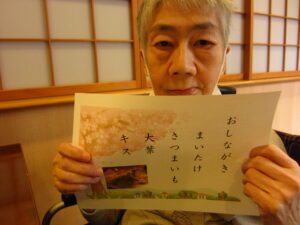 おしながき
まいたけ
さつまいも
大葉
キス